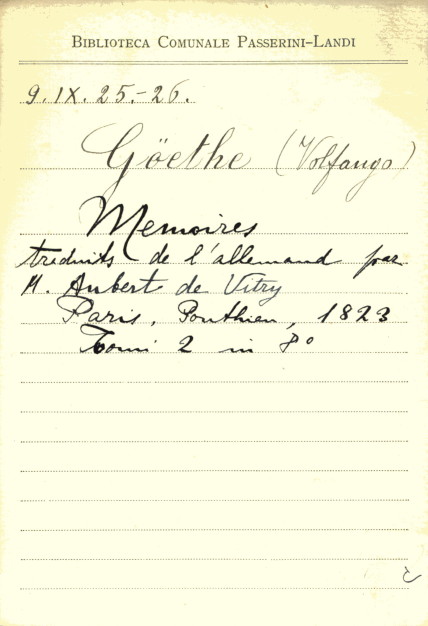 BIBLIOTECA COMUNALE PASSERINI-LANDI
9. IX. 25.-26.
Göethe (Volfango)
Memoires
traduits de l'allemand par
M. Aubert de Vitry
Paris, Ponthieu, 1823
Tomi 2 in 8°